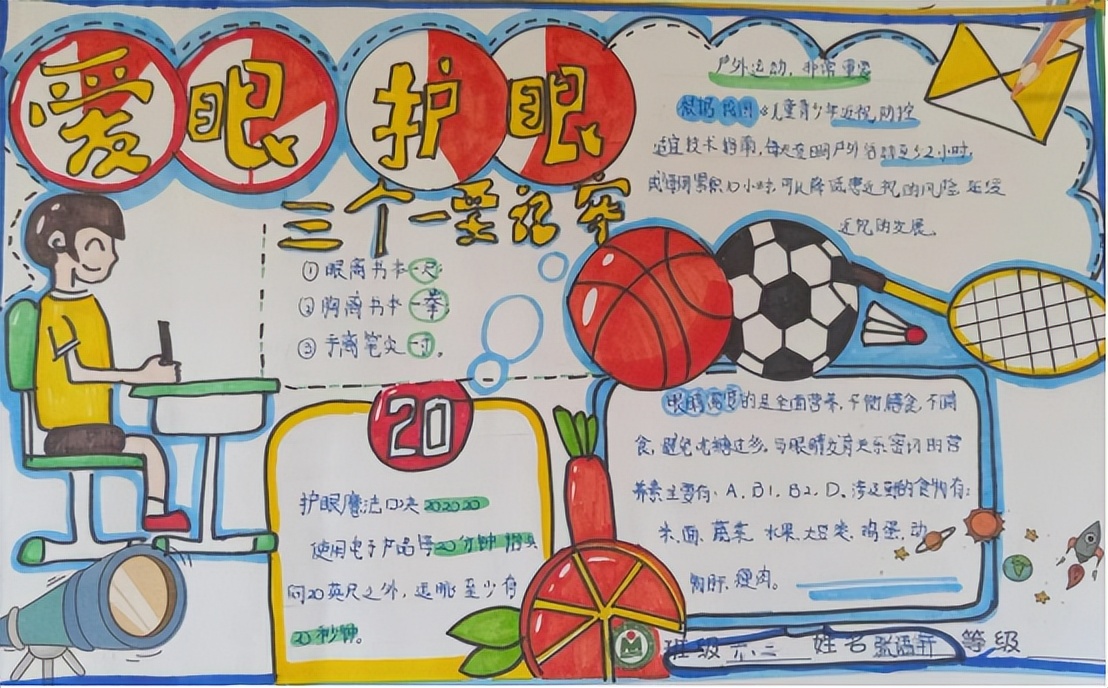 爱眼护眼
三个一要记牢
① 眼离书本一尺
② 胸离书本一拳
③ 手离笔尖一寸。
户外运动，非常重要
根据我国《儿童青少年近视防控
适宜技术指南，每天要确户外活动至少2小时，
或每周累积10小时可以降低患近视的风险延缓
近视的发展。
20
护眼魔法口诀202020
使用电子产品每20分钟抬头
向20英尺之外，远眺至少有
20秒钟。
眼睛需要的是全面营养，平衡膳食，不
食，避免吃糖过多。与眼睛发育关系密切的营
养素主要有：A、B1、B2、D。涉及到的食物有：
米、面、蔬菜、水果、大豆类、鸡蛋、动
物肝、瘦肉。
班级 六、二 姓名 张语 等级